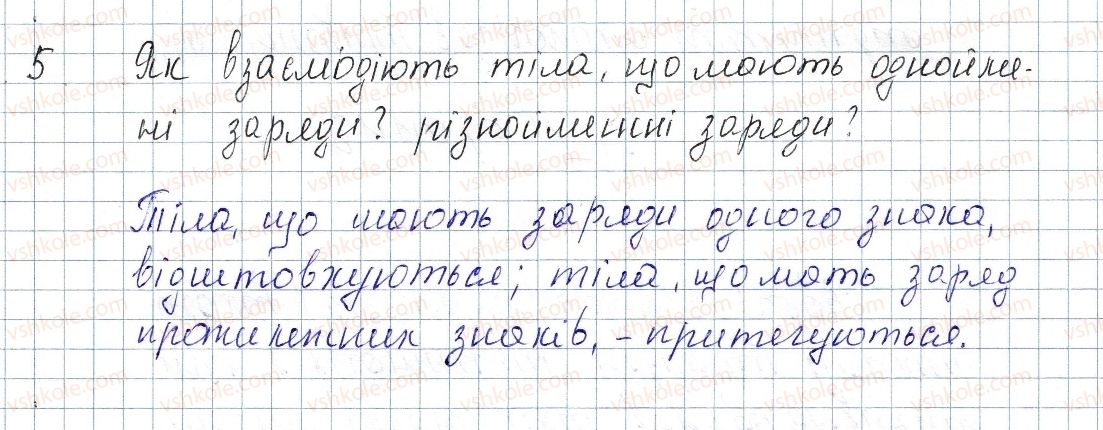 5 Як взаємодіють тіла, що мають однойме-
ні заряди? різнойменні заряди?
Тіла, що мають заряди одного знака,
відштовхуються; тіла, що мать заряд
протилежних знаків, – притягуються.